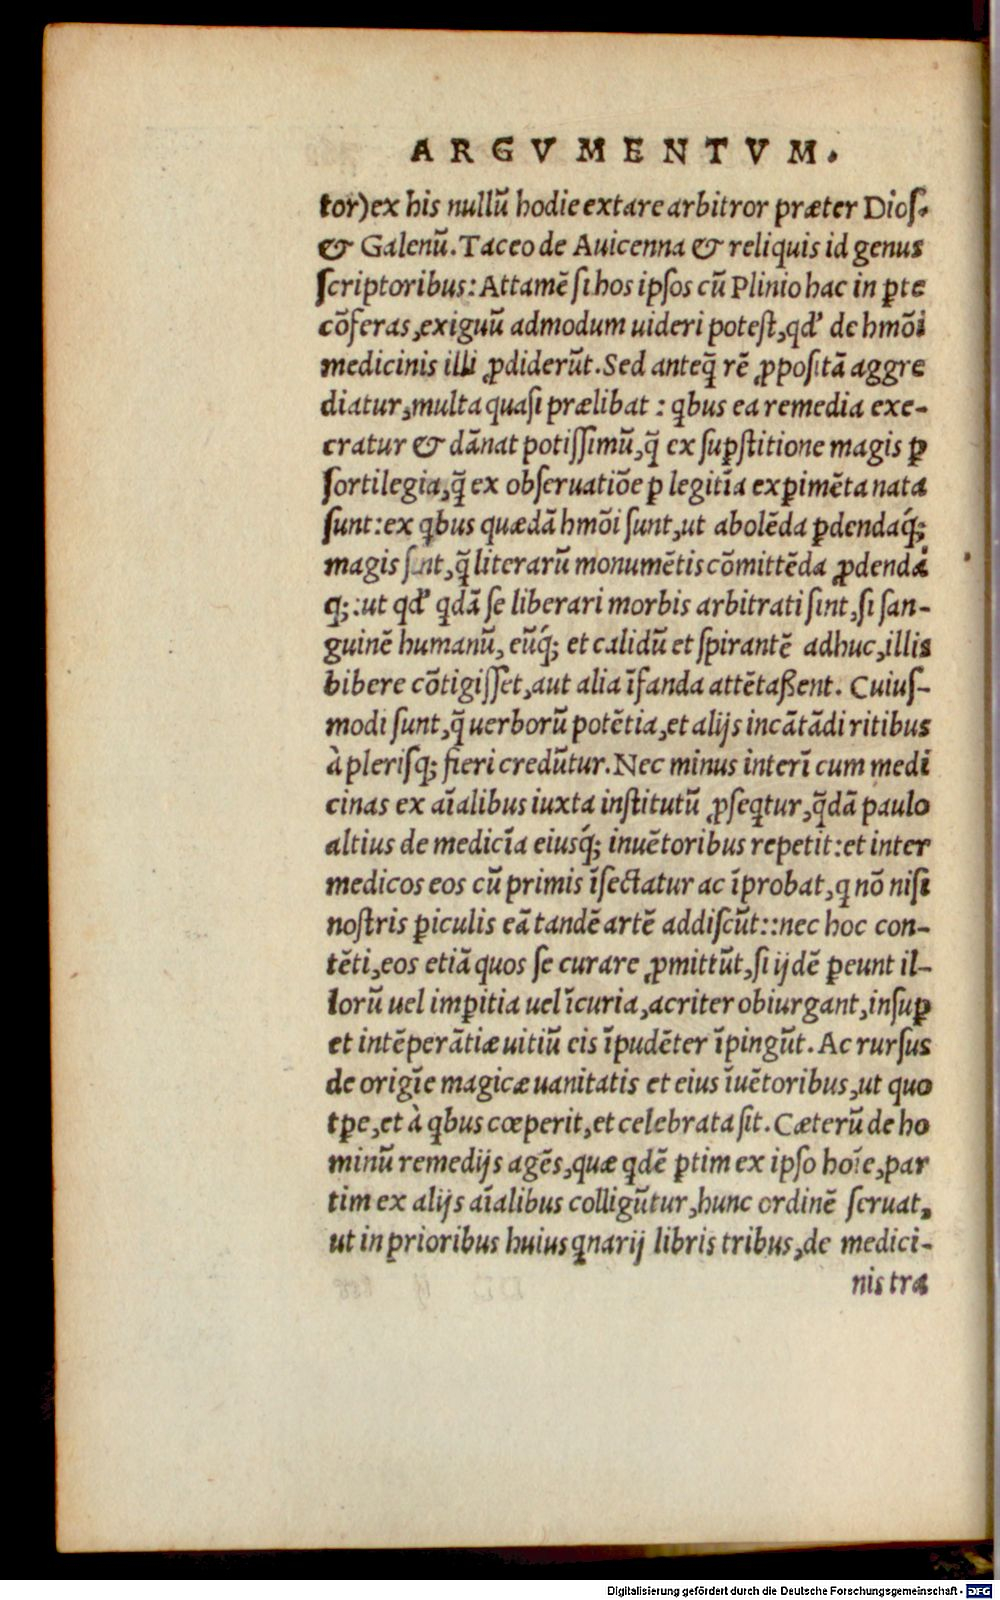 ARGVMENTVM.
tor) ex his nullũ hodie extare arbitror præter Dioſ.
& Galenũ. Taceo de Auicenna & reliquis id genus
ſcriptoribus: Attamẽ ſi hos ipſos cũ Plinio hac in ꝑte
cõferas, exiguũ admodum uideri poteſt, qd' de hmõi
medicinis illi ꝓdiderũt. Sed anteq̃ rẽ ꝓpoſitã aggre
diatur, multa quaſi prælibat: qbus ea remedia exe-
cratur & dãnat potiſſimũ, q̃ ex ſuꝑſtitione magis ꝑ
ſortilegia, q̃ ex obſeruatiõe ꝑ legitĩa exꝑimẽta nata
ſunt: ex qbus quædã hmõi ſunt, ut abolẽda ꝑdendaq́;
magis ſint, q̃ literarũ monumẽtis cõmittẽda ꝓdendá
q;: ut qd' qdã ſe liberari morbis arbitrati ſint, ſi ſan-
guinẽ humanũ, eũq́; et calidũ et ſpirantẽ adhuc, illis
bibere cõtigiſſet, aut alia ĩfanda attẽtaßent. Cuiuſ-
modi ſunt, q̃ uerborũ potẽtia, et alijs incãtãdi ritibus
à pleriſq; fieri credũtur. Nec minus interĩ cum medi
cinas ex aĩalibus iuxta inſtitutũ ꝓſeqtur, q̃dã paulo
altius de medicĩa eiusq́; inuẽtoribus repetit: et inter
medicos eos cũ primis ĩſectatur ac ĩprobat, q nõ niſi
noſtris ꝑiculis eã tandẽ artẽ addiſcũt:: nec hoc con-
tẽti, eos etiã quos ſe curare ꝓmittũt, ſi ijdẽ ꝑeunt il-
lorũ uel imꝑitia uel ĩcuria, acriter obiurgant, inſuꝑ
et intẽperãtiæ uitiũ eis ĩpudẽter ĩpingũt. Ac rurſus
de origĩe magicæ uanitatis et eius ĩuẽtoribus, ut quo
tꝑe, et à qbus cœperit, et celebrata ſit. Cæterũ de ho
minũ remedijs agẽs, quæ qdẽ ꝑtim ex ipſo hoĩe, par
tim ex alijs aĩalibus colligũtur, hunc ordinẽ ſeruat,
ut in prioribus huius qnarij libris tribus, de medici-
nis tra
Digitalisierung gefördert durch die Deutsche Forschungsgemeinschaft - DFG